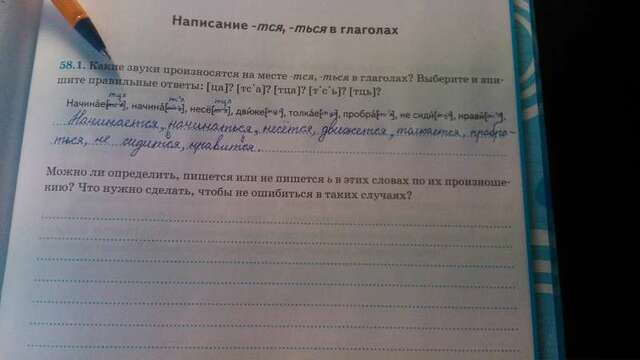 Написание -тся, -ться в глаголах
58.1. Какие звуки произносятся на месте -тся, -ться в глаголах? Выберите и впи-
шите правильные ответы: [ца]? [тс'а]? [тца]? [т'с'ь]? [тць]?
Начина́е[ ], начина́[ ], несё[ ], дви́же[ ], толка́е[ ], пробра́[ ], не сиди́[ ], нрави́[ ].
Начинается, начинаться, несётся, движется, толкается, пробра-
ться, не сидится, нравится.
Можно ли определить, пишется или не пишется ь в этих словах по их произноше-
нию? Что нужно сделать, чтобы не ошибиться в таких случаях?